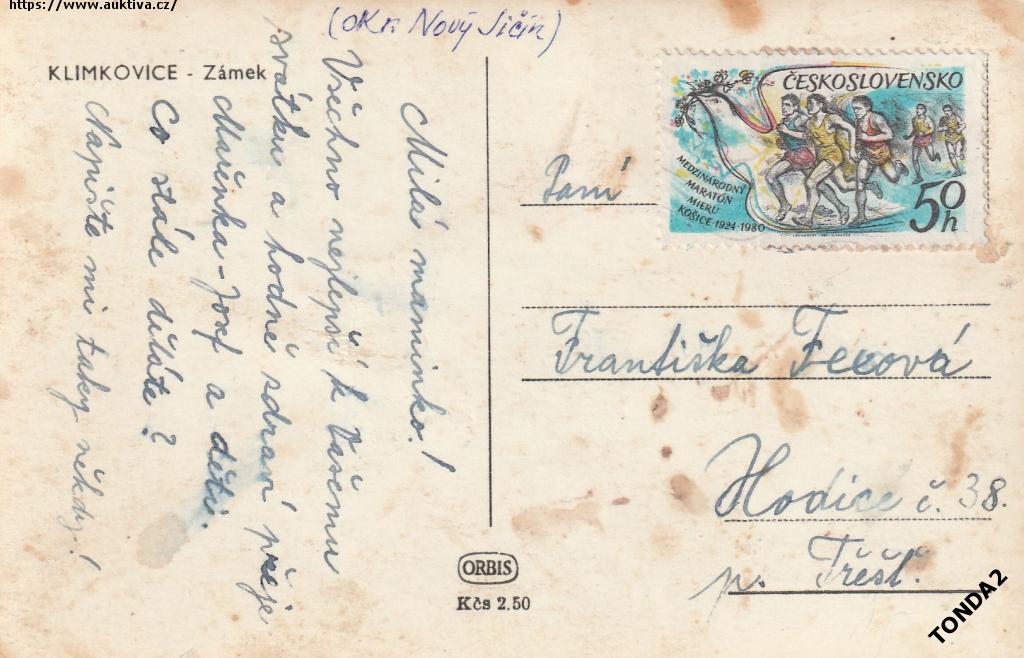 https://www.auktiva.cz/
(okr. Nový Jičín)
KLIMKOVICE - Zámek
Milá maminko!
Všechno nejlepší k Vašemu
svátku a hodně zdraví přeje
Mařenka-Josef a děti.
Co stále děláte?
Napište mi taky někdy!
ČESKOSLOVENSKO
MEDZINÁRODNÝ
MARATÓN
MIERU
KOŠICE·1924·1980
50h
Paní
Františka Fexová
Hodice č. 38.
p. Třešť.
ORBIS
Kčs 2.50
TONDA2